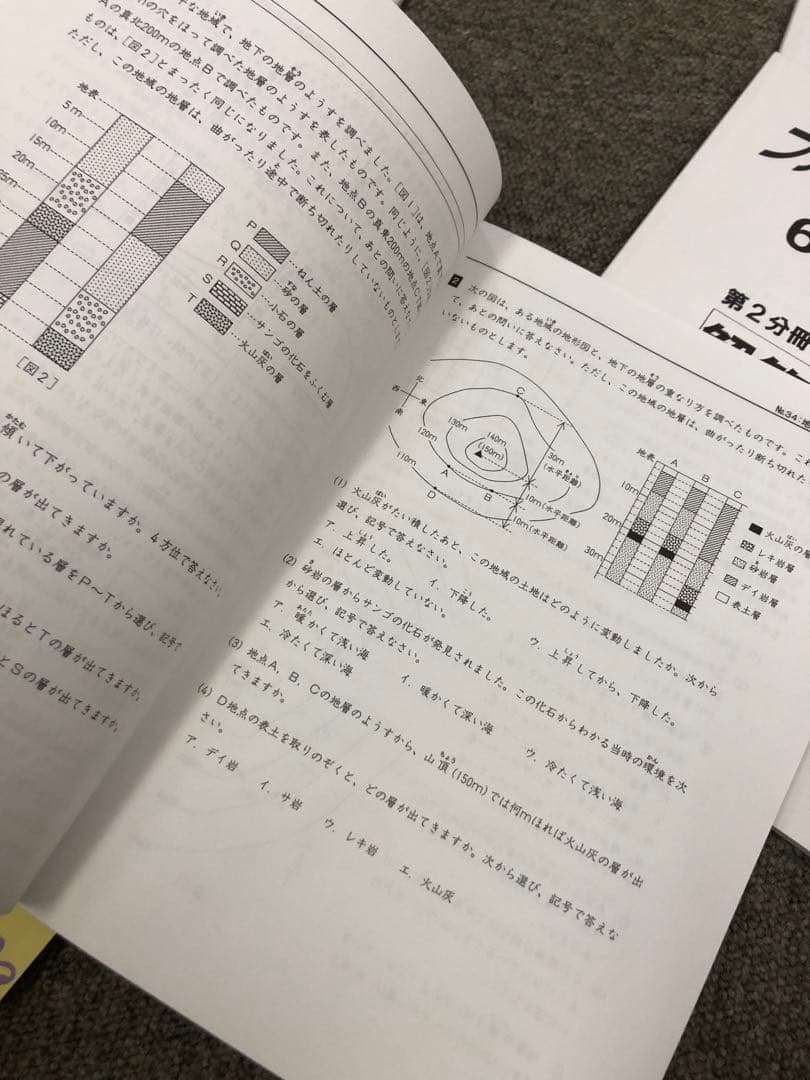 な地域で、地下の地層のようすを調べました。[図1]は、地点Aで
の穴をほって調べた地層のようすを表したものです。同じように、[図2]
Aの真北200mの地点Bで調べたものです。また、地点Bの真東200mの地点C
ものは、[図2]とまったく同じになりました。これについて、あとの問いに答え
ただし、この地域の地層は、曲がったり途中で断ち切れたりしていないものとし
地表
5m
10m
15m
20m
25m
[図2]
P …ねん土の層
Q …砂の層
R …小石の層
S …サンゴの化石をふくむ層
T …火山灰の層
傾いて下がっていますか。4方位で答えなさい。
の層が出てきますか。
れている層をP〜Tから選び、記号で
ほるとTの層が出てきますか。
とSの層が出てきますか。
№34:地
2 次の図は、ある地域の地形図と、地下の地層の重なり方を調べたものです。これ
て、あとの問いに答えなさい。ただし、この地域の地層は、曲がったり断ち切れた
いないものとします。
北
西 東
南
C
140m
130m
(150m)
120m
110m
A
B
D
30m
(水平距離)
10m(水平距離)
10m(水平距離)
地表 A B C
10m
20m
30m
火山灰の層
レキ岩層
砂岩層
デイ岩層
表土層
(1) 火山灰がたい積したあと、この地域の土地はどのように変動しましたか。次から
選び、記号で答えなさい。
ア．上昇した。 イ．下降した。 ウ．上昇してから、下降した。
エ．ほとんど変動していない。
(2) 砂岩の層からサンゴの化石が発見されました。この化石からわかる当時の環境を次
から選び、記号で答えなさい。
ア．暖かくて浅い海 イ．暖かくて深い海 ウ．冷たくて浅い海
エ．冷たくて深い海
(3) 地点A、B、Cの地層のようすから、山頂(150m)では何mほれば火山灰の層が出
てきますか。
(4) D地点の表土を取りのぞくと、どの層が出てきますか。次から選び、記号で答えな
さい。
ア．デイ岩 イ．サ岩 ウ．レキ岩 エ．火山灰
6
第2分冊